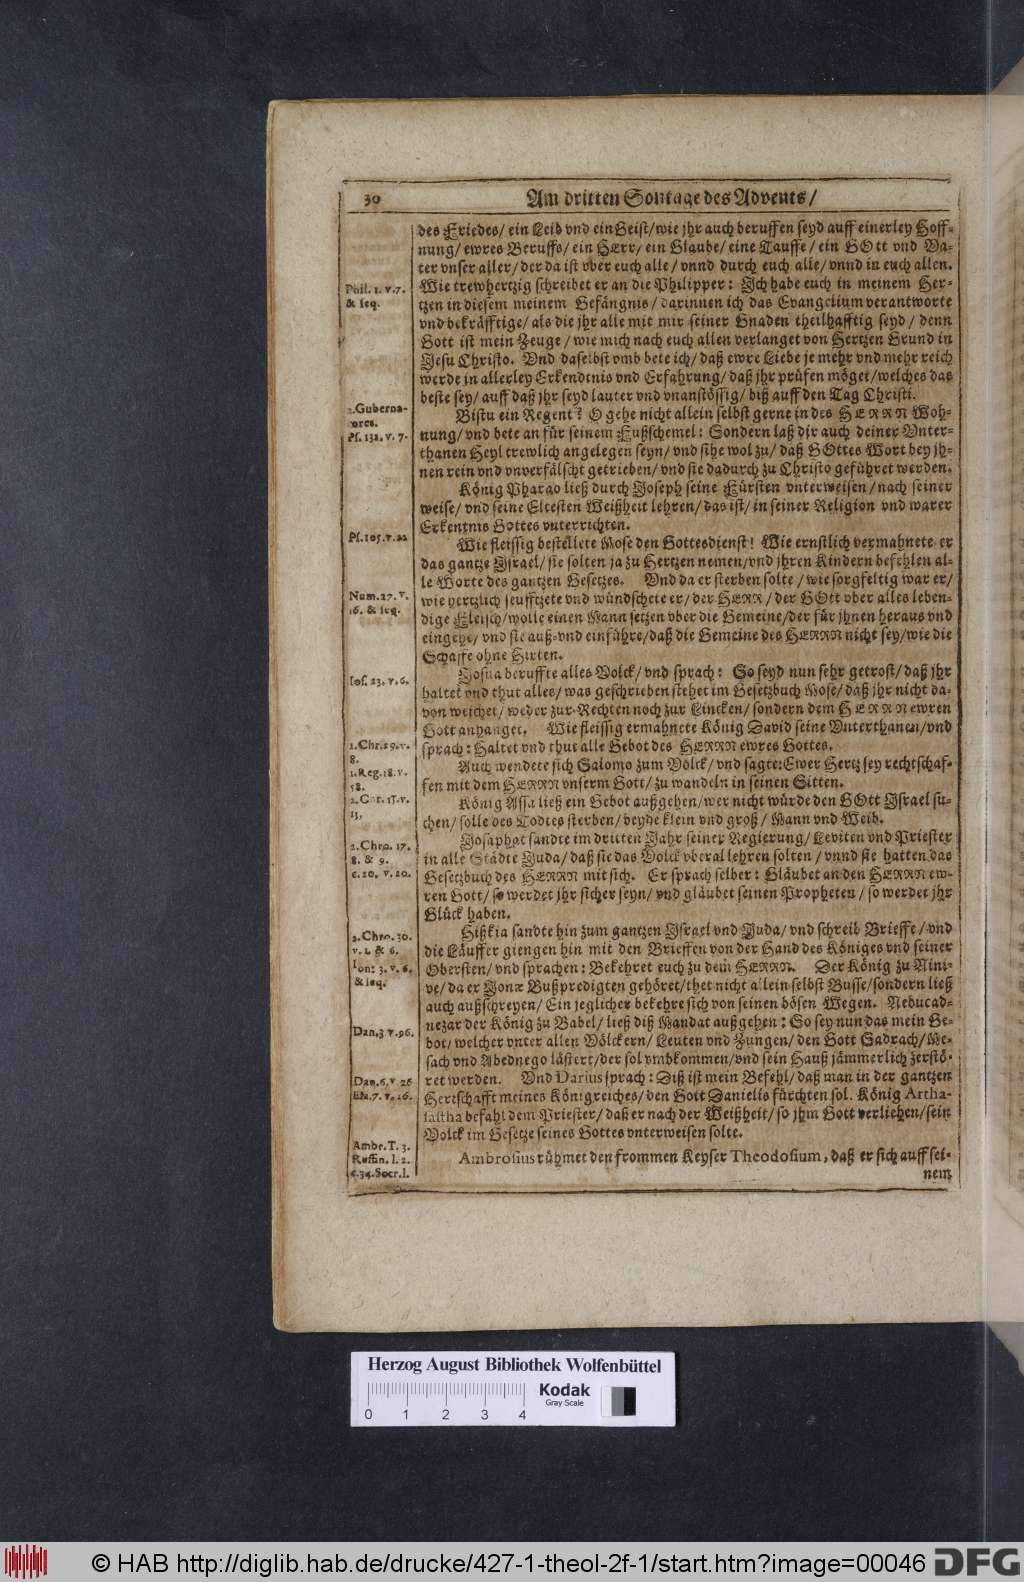 30 Am dritten Sontage des Advents/
des Friedes/ ein Leib vnd ein Geist/ wie jhr auch beruffen seyd auff einerley Hoff-
nung/ ewres Beruffs/ ein HErr/ ein Glaube/ eine Tauffe/ ein GOtt vnd Va-
ter vnser aller/ der da ist vber euch alle/ vnnd durch euch alle/ vnnd in euch allen.
Phil. 1. v. 7.
& seq.
Wie trewhertzig schreibet er an die Philipper: Ich habe euch in meinem Her-
tzen in diesem meinem Gefängnis/ darinnen ich das Evangelium verantworte
vnd bekräfftige/ als die jhr alle mit mir seiner Gnaden theilhafftig seyd/ denn
Gott ist mein Zeuge/ wie mich nach euch allen verlanget von Hertzen Grund in
Jesu Christo. Vnd daselbst vmb bete ich/ daß ewre Liebe je mehr vnd mehr reich
werde in allerley Erkendtnis vnd Erfahrung/ daß jhr prüfen möget/ welches das
beste sey/ auff daß jhr seyd lauter vnd vnanstössig/ biß auff den Tag Christi.
2. Guberna-
tores.
Ps. 132. v. 7.
Bistu ein Regent? O gehe nicht allein selbst gerne in des HERRN Woh-
nung/ vnd bete an für seinem Fußschemel: Sondern laß dir auch deiner Vnter-
thanen Heyl trewlich angelegen seyn/ vnd sihe wol zu/ daß GOttes Wort bey jh-
nen rein vnd vnverfälscht getrieben/ vnd sie dadurch zu Christo geführet werden.
König Pharao ließ durch Joseph seine Fürsten vnterweisen/ nach seiner
weise/ vnd seine Eltesten Weißheit lehren/ das ist/ in seiner Religion vnd warer
Erkentnis Gottes vnterrichten.
Ps. 105. v. 22
Wie fleissig bestellete Mose den Gottesdienst! Wie ernstlich vermahnete er
das gantze Israel/ sie solten ja zu Hertzen nemen/ vnd jhren Kindern befehlen al-
le Worte des gantzen Gesetzes. Vnd da er sterben solte/ wie sorgfeltig war er/
Num. 27. v.
16. & seq.
wie hertzlich seufftzete vnd wündschete er/ der HERR/ der GOtt vber alles leben-
dige Fleisch/ wolle einen Mann setzen vber die Gemeine/ der für jhnen heraus vnd
eingehe/ vnd sie auß- vnd einführe/ daß die Gemeine des HERRN nicht sey/ wie die
Schaffe ohne Hirten.
Ios. 23. v. 6.
Josua beruffte alles Volck/ vnd sprach: So seyd nun sehr getrost/ daß jhr
haltet vnd thut alles/ was geschrieben stehet im Gesetzbuch Mose/ daß jhr nicht da-
von weichet/ weder zur Rechten noch zur Lincken/ sondern dem HERRN ewren
Gott anhanget. Wie fleissig ermahnete König David seine Vnterthanen/ vnd
sprach: Haltet vnd thut alle Gebot des HERRN ewres Gottes.
1. Chr. 29. v.
8.
1. Reg. 18. v.
58.
Auch wendete sich Salomo zum Volck/ vnd sagte: Ewer Hertz sey rechtschaf-
fen mit dem HERRN vnserm Gott/ zu wandeln in seinen Sitten.
2. Chr. 15. v.
13.
König Assa ließ ein Gebot außgehen/ wer nicht würde den GOtt Israel su-
chen/ solle des Todtes sterben/ beyde klein vnd groß/ Mann vnd Weib.
2. Chro. 17.
8. & 9.
c. 20. v. 20.
Josaphat sandte im dritten Jahr seiner Regierung/ Leviten vnd Priester
in alle Städte Juda/ daß sie das Volck vberal lehren solten/ vnnd sie hatten das
Gesetzbuch des HERRN mit sich. Er sprach selber: Gläubet an den HERRN ew-
ren Gott/ so werdet jhr sicher seyn/ vnd gläubet seinen Propheten/ so werdet jhr
Glück haben.
2. Chro. 30.
v. 1. & 6.
Hißkia sandte hin zum gantzen Israel vnd Juda/ vnd schreib Brieffe/ vnd
die Läuffer giengen hin mit den Brieffen von der Hand des Königes vnd seiner
Obersten/ vnd sprachen: Bekehret euch zu dem HERRN. Der König zu Nini-
Ion: 3. v. 6.
& seq.
ve/ da er Jonæ Bußpredigten gehöret/ thet nicht allein selbst Busse/ sondern ließ
auch außschreyen/ Ein jeglicher bekehre sich von seinen bösen Wegen. Nebucad-
Dan. 3 v. 96.
nezar der König zu Babel/ ließ diß Mandat außgehen: So sey nun das mein Ge-
bot/ welcher vnter allen Völckern/ Leuten vnd Zungen/ den Gott Sadrach/ Me-
sach vnd Abednego lästert/ der sol vmbkommen/ vnd sein Hauß jämmerlich zerstö-
Dan. 6. v. 26
ret werden. Vnd Darius sprach: Diß ist mein Befehl/ daß man in der gantzen
Esd. 7. v. 26.
Hertschafft meines Königreiches/ den Gott Danielis fürchten sol. König Artha-
sastha befahl dem Priester/ daß er nach der Weißheit/ so jhm Gott verliehen/ sein
Volck im Gesetze seines Gottes vnterweisen solte.
Ambr. T. 3.
Ruffin. l. 2.
c. 34. Socr. l.
Ambrosius rühmet den frommen Keyser Theodosium, daß er sich auff sei-
nem
Herzog August Bibliothek Wolfenbüttel
0 1 2 3 4
Kodak
Gray Scale
© HAB http://diglib.hab.de/drucke/427-1-theol-2f-1/start.htm?image=00046 DFG